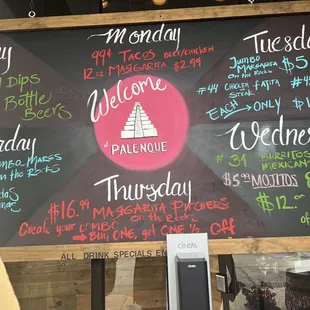 Monday
99¢ TACOS BEEF/CHICKEN
12oz MARGARITA $2.99
DIPS
Bottle
Beers
Welcome
at PALENQUE
Tuesd
JUMBO
MARGARITA $5
on the Rocks
#44 CHICKEN FAJITA
STEAK
EACH → ONLY
MARGS
on the Rocks
Thursday
$16.99 MARGARITA PITCHERS
on the Rocks
Create your COMBO
→ BUY, ONE, get ONE ½ Off
Wedne
# 34 BURRITOS
MEXICAN
$5.99 MOJITOS
$12.
ALL DRINK SPECIALS
cintas